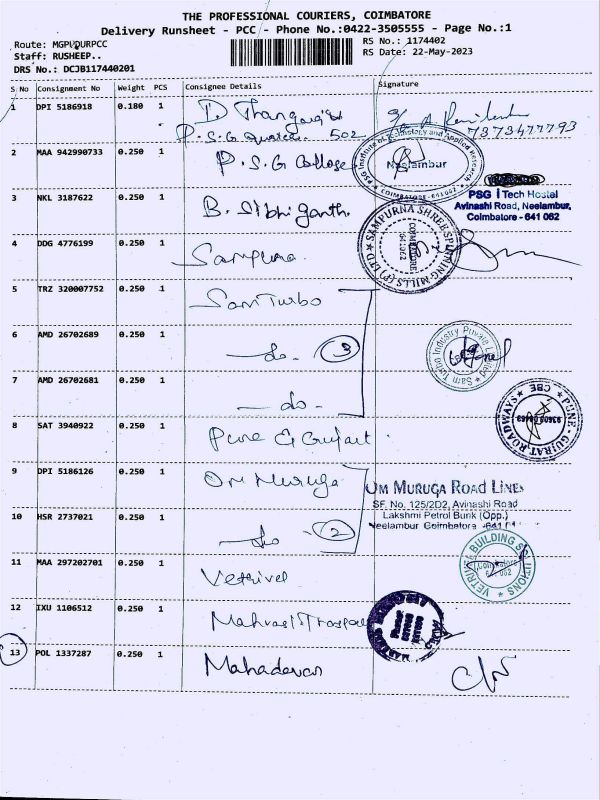 THE PROFESSIONAL COURIERS, COIMBATORE
Delivery Runsheet - PCC - Phone No.:0422-3505555 - Page No.:1
Route: MGPUDURPCC
RS No.: 1174402
Staff: RUSHEEP..
RS Date: 22-May-2023
DRS No.: DCJB117440201
S No Consignment No Weight PCS Consignee Details Signature
1 DPI 5186918 0.180 1
P.S.G Quarters 502 7373477793
2 MAA 942990733 0.250 1 P.S.G College
PSG Institute of Technology and Applied Research
Neelambur
COIMBATORE-641062
3 NKL 3187622 0.250 1 B. Sibhi ganth
PSG iTech Hostel
Avinashi Road, Neelambur,
Coimbatore - 641 062
4 DDG 4776199 0.250 1 Sampurna
SAMPURNA SHREE SPINNING MILLS (P) LTD
COIMBATORE
641062
5 TRZ 320007752 0.250 1 Sam Turbo
6 AMD 26702689 0.250 1 - do - 3
Sam Turbo Industry Private Limited
7 AMD 26702681 0.250 1 - do -
8 SAT 3940922 0.250 1 Pune & Gujart
PUNE GUJRAT ROADWAYS CBE
9 DPI 5186126 0.250 1 Om Muruga
OM MURUGA ROAD LINES
SF. No. 125/2D2, Avinashi Road
Lakshmi Petrol Bunk (Opp.)
Neelambur Coimbatore
10 HSR 2737021 0.250 1 - do - 2
11 MAA 297202701 0.250 1 Vetrivel
VETRIVEL BUILDING SOLUTIONS
Coimbatore
641 062
12 IXU 1106512 0.250 1
13 POL 1337287 0.250 1 Mahadevan